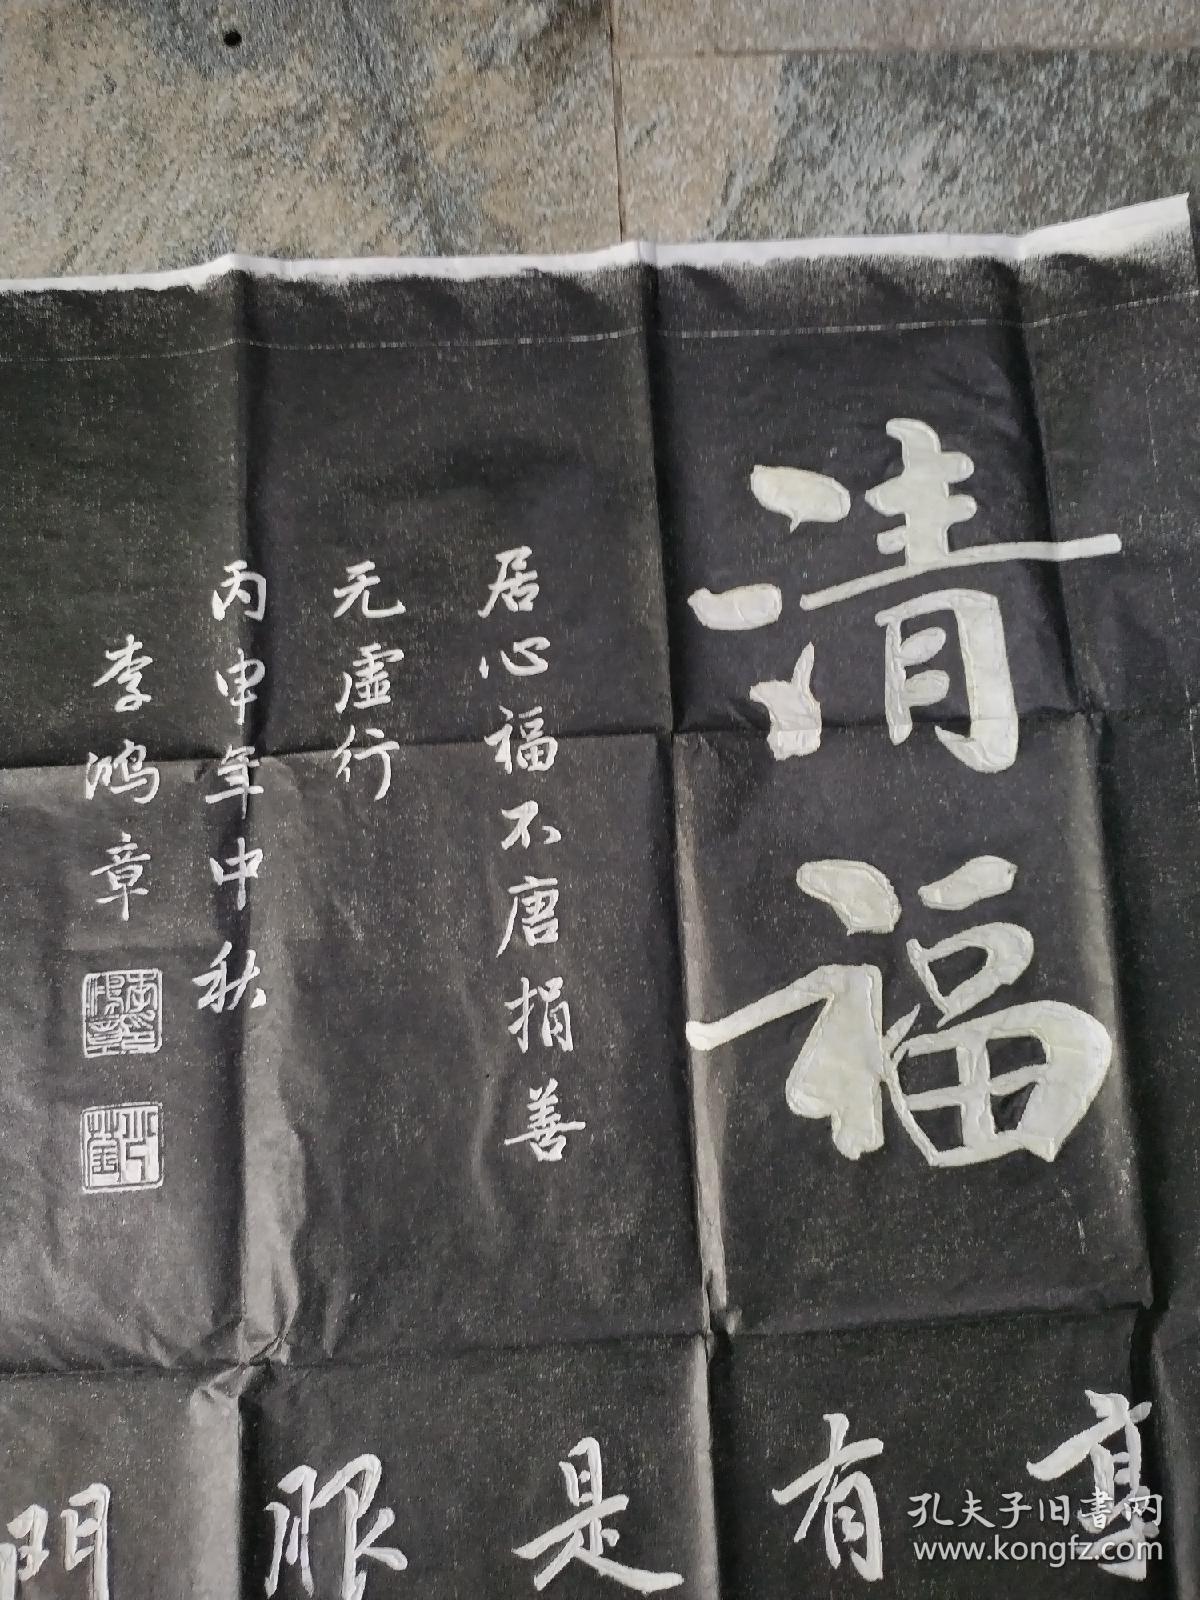 清福
居心福不唐捐善
无虚行
丙申年中秋
李鸿章
有
是
服
門
孔夫子旧書网
www.kongfz.com